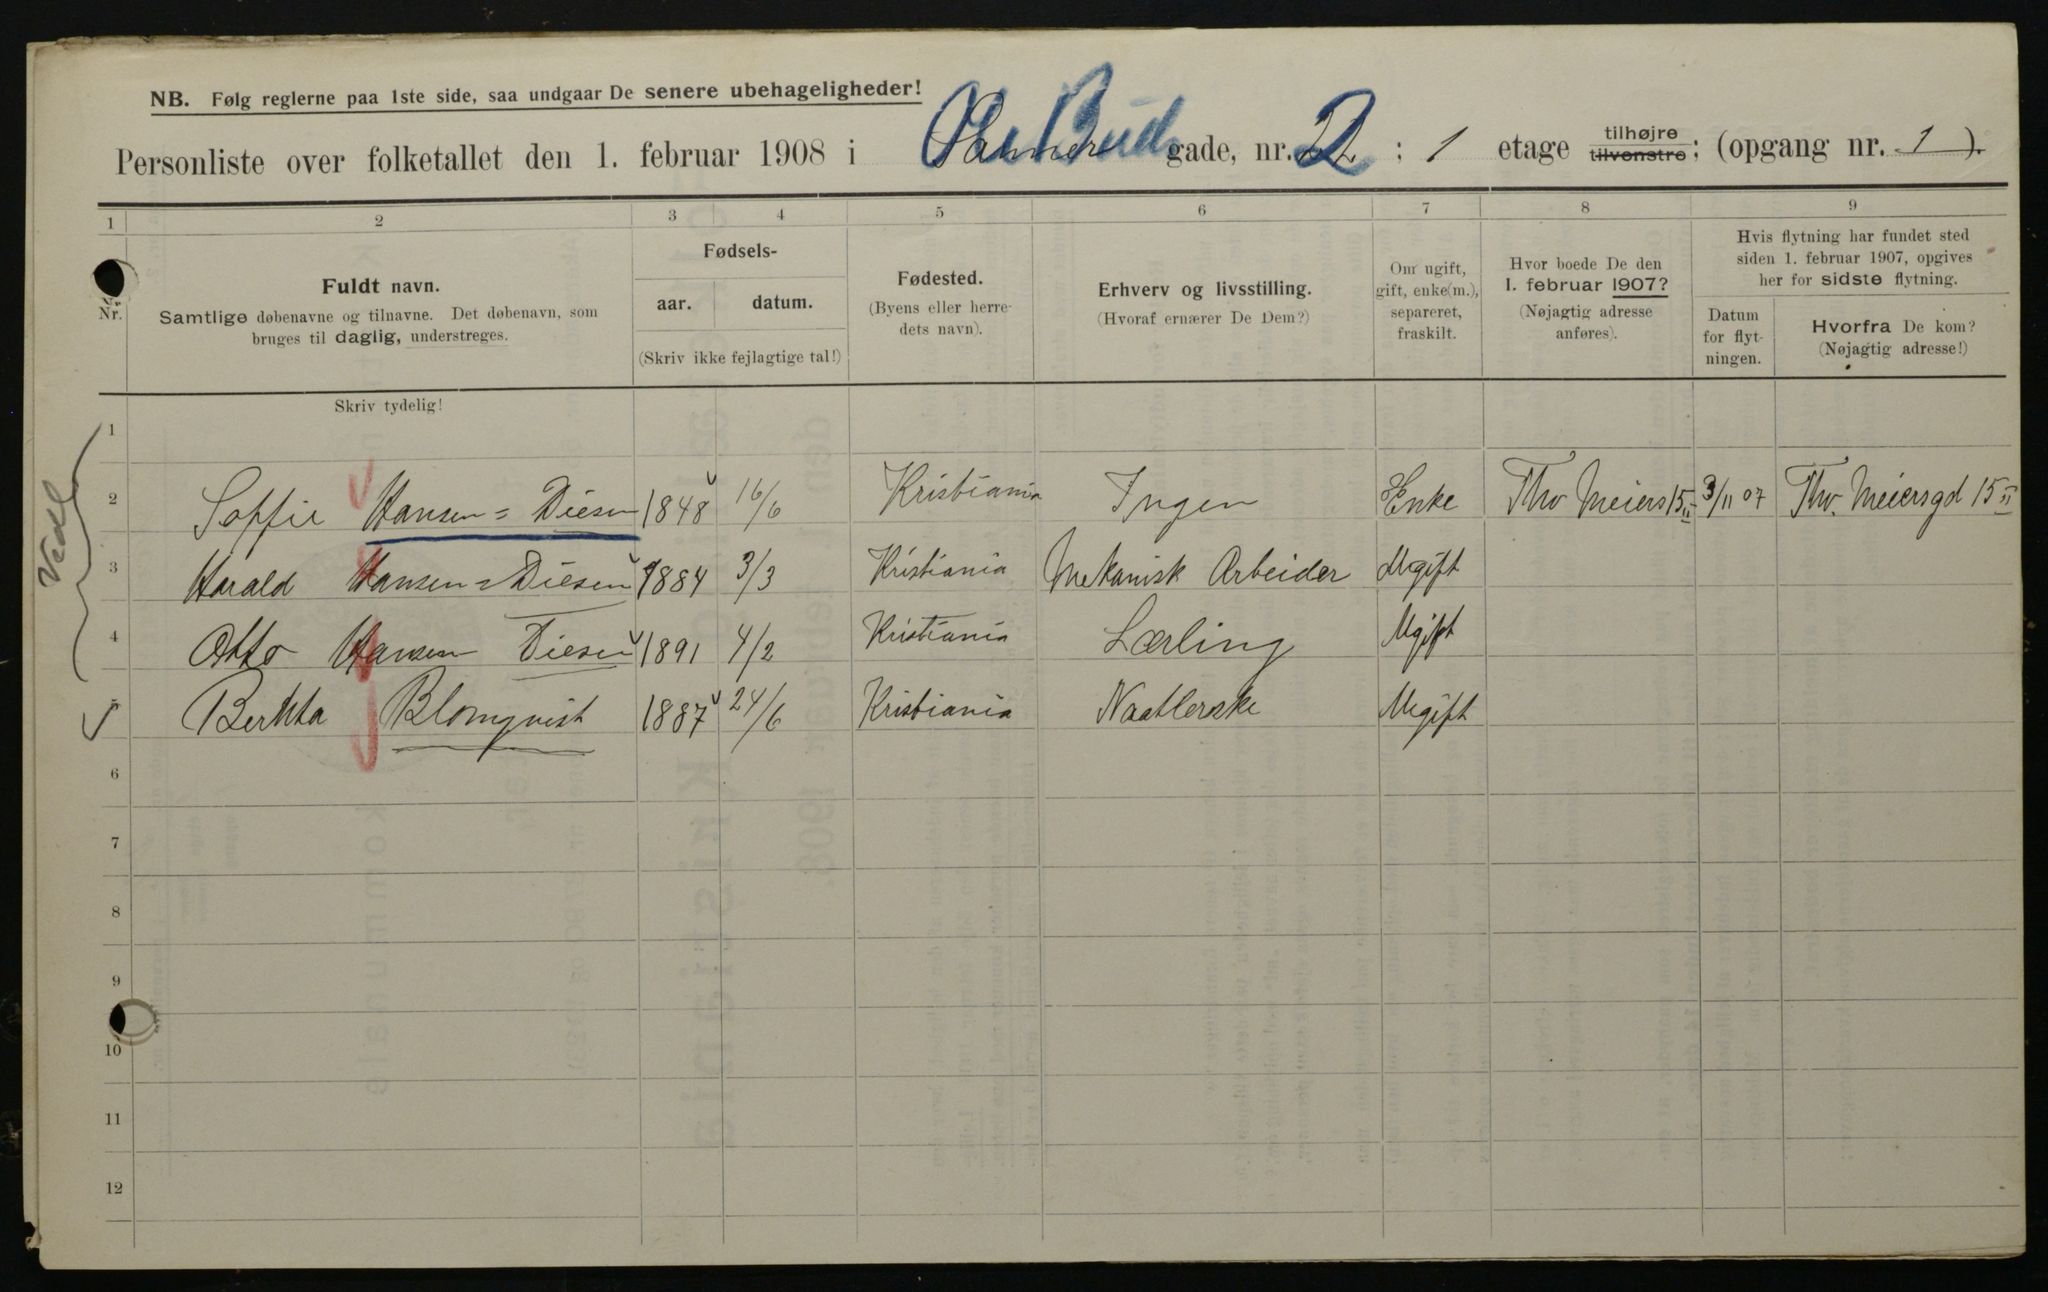 NB. Følg reglerne paa 1ste side, saa undgaar De senere ubehageligheder!
Personliste over folketallet den 1. februar 1908 i gade, nr. 2 ; 1 etage tilhøjre tilvenstre; (opgang nr. 1).
1 2 3 4 5 6 7 8 9
Nr.
Fuldt navn.
Samtlige døbenavne og tilnavne. Det døbenavn, som
bruges til daglig, understreges.
Fødsels-
aar. datum.
(Skriv ikke fejlagtige tal!)
Fødested.
(Byens eller herre-
dets navn).
Erhverv og livsstilling.
(Hvoraf ernærer De Dem?)
Om ugift,
gift, enke(m.),
separeret,
fraskilt.
Hvor boede De den
1. februar 1907?
(Nøjagtig adresse
anføres).
Hvis flytning har fundet sted
siden 1. februar 1907, opgives
her for sidste flytning.
Datum
for flyt-
ningen.
Hvorfra De kom?
(Nøjagtig adresse!)
Skriv tydelig!
1
2 Soffie Hansen=Diesen 1848 16/6 Kristiania Ingen Enke Thv Meiers 15 II 3/11 07 Thv. Meiersgd 15 II
3 Harald Hansen=Diesen 1884 3/3 Kristiania Mekanisk Arbeider Ugift
4 Otto Hansen Diesen 1891 4/2 Kristiania Lærling Ugift
5 Berhta Blomqvist 1887 24/6 Kristiania Naatlerske Ugift
6
7
8
9
10
11
12